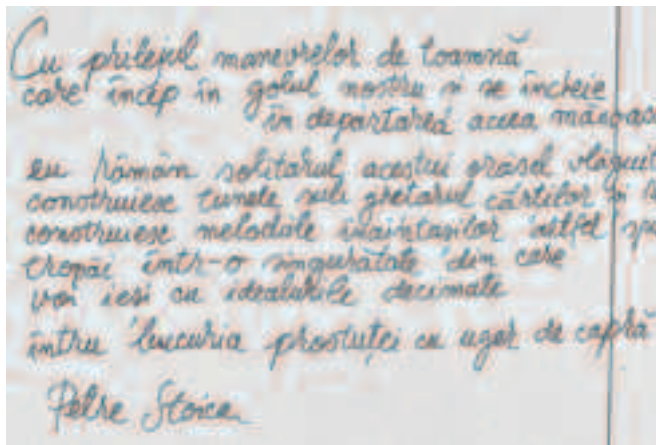 Cu prilejul manevrelor de toamnă
care încep în golul nostru și se încheie
în depărtarea aceea
eu rămân solitarul acestui orășel vlăguit
construiesc tunele sub grătarul cărților și
construiesc metodele înaintașilor astfel
tropăi într-o singurătate din care
voi ieși cu idealurile decimate
întru bucuria prostuței cu uger de capră
Petre Stoica